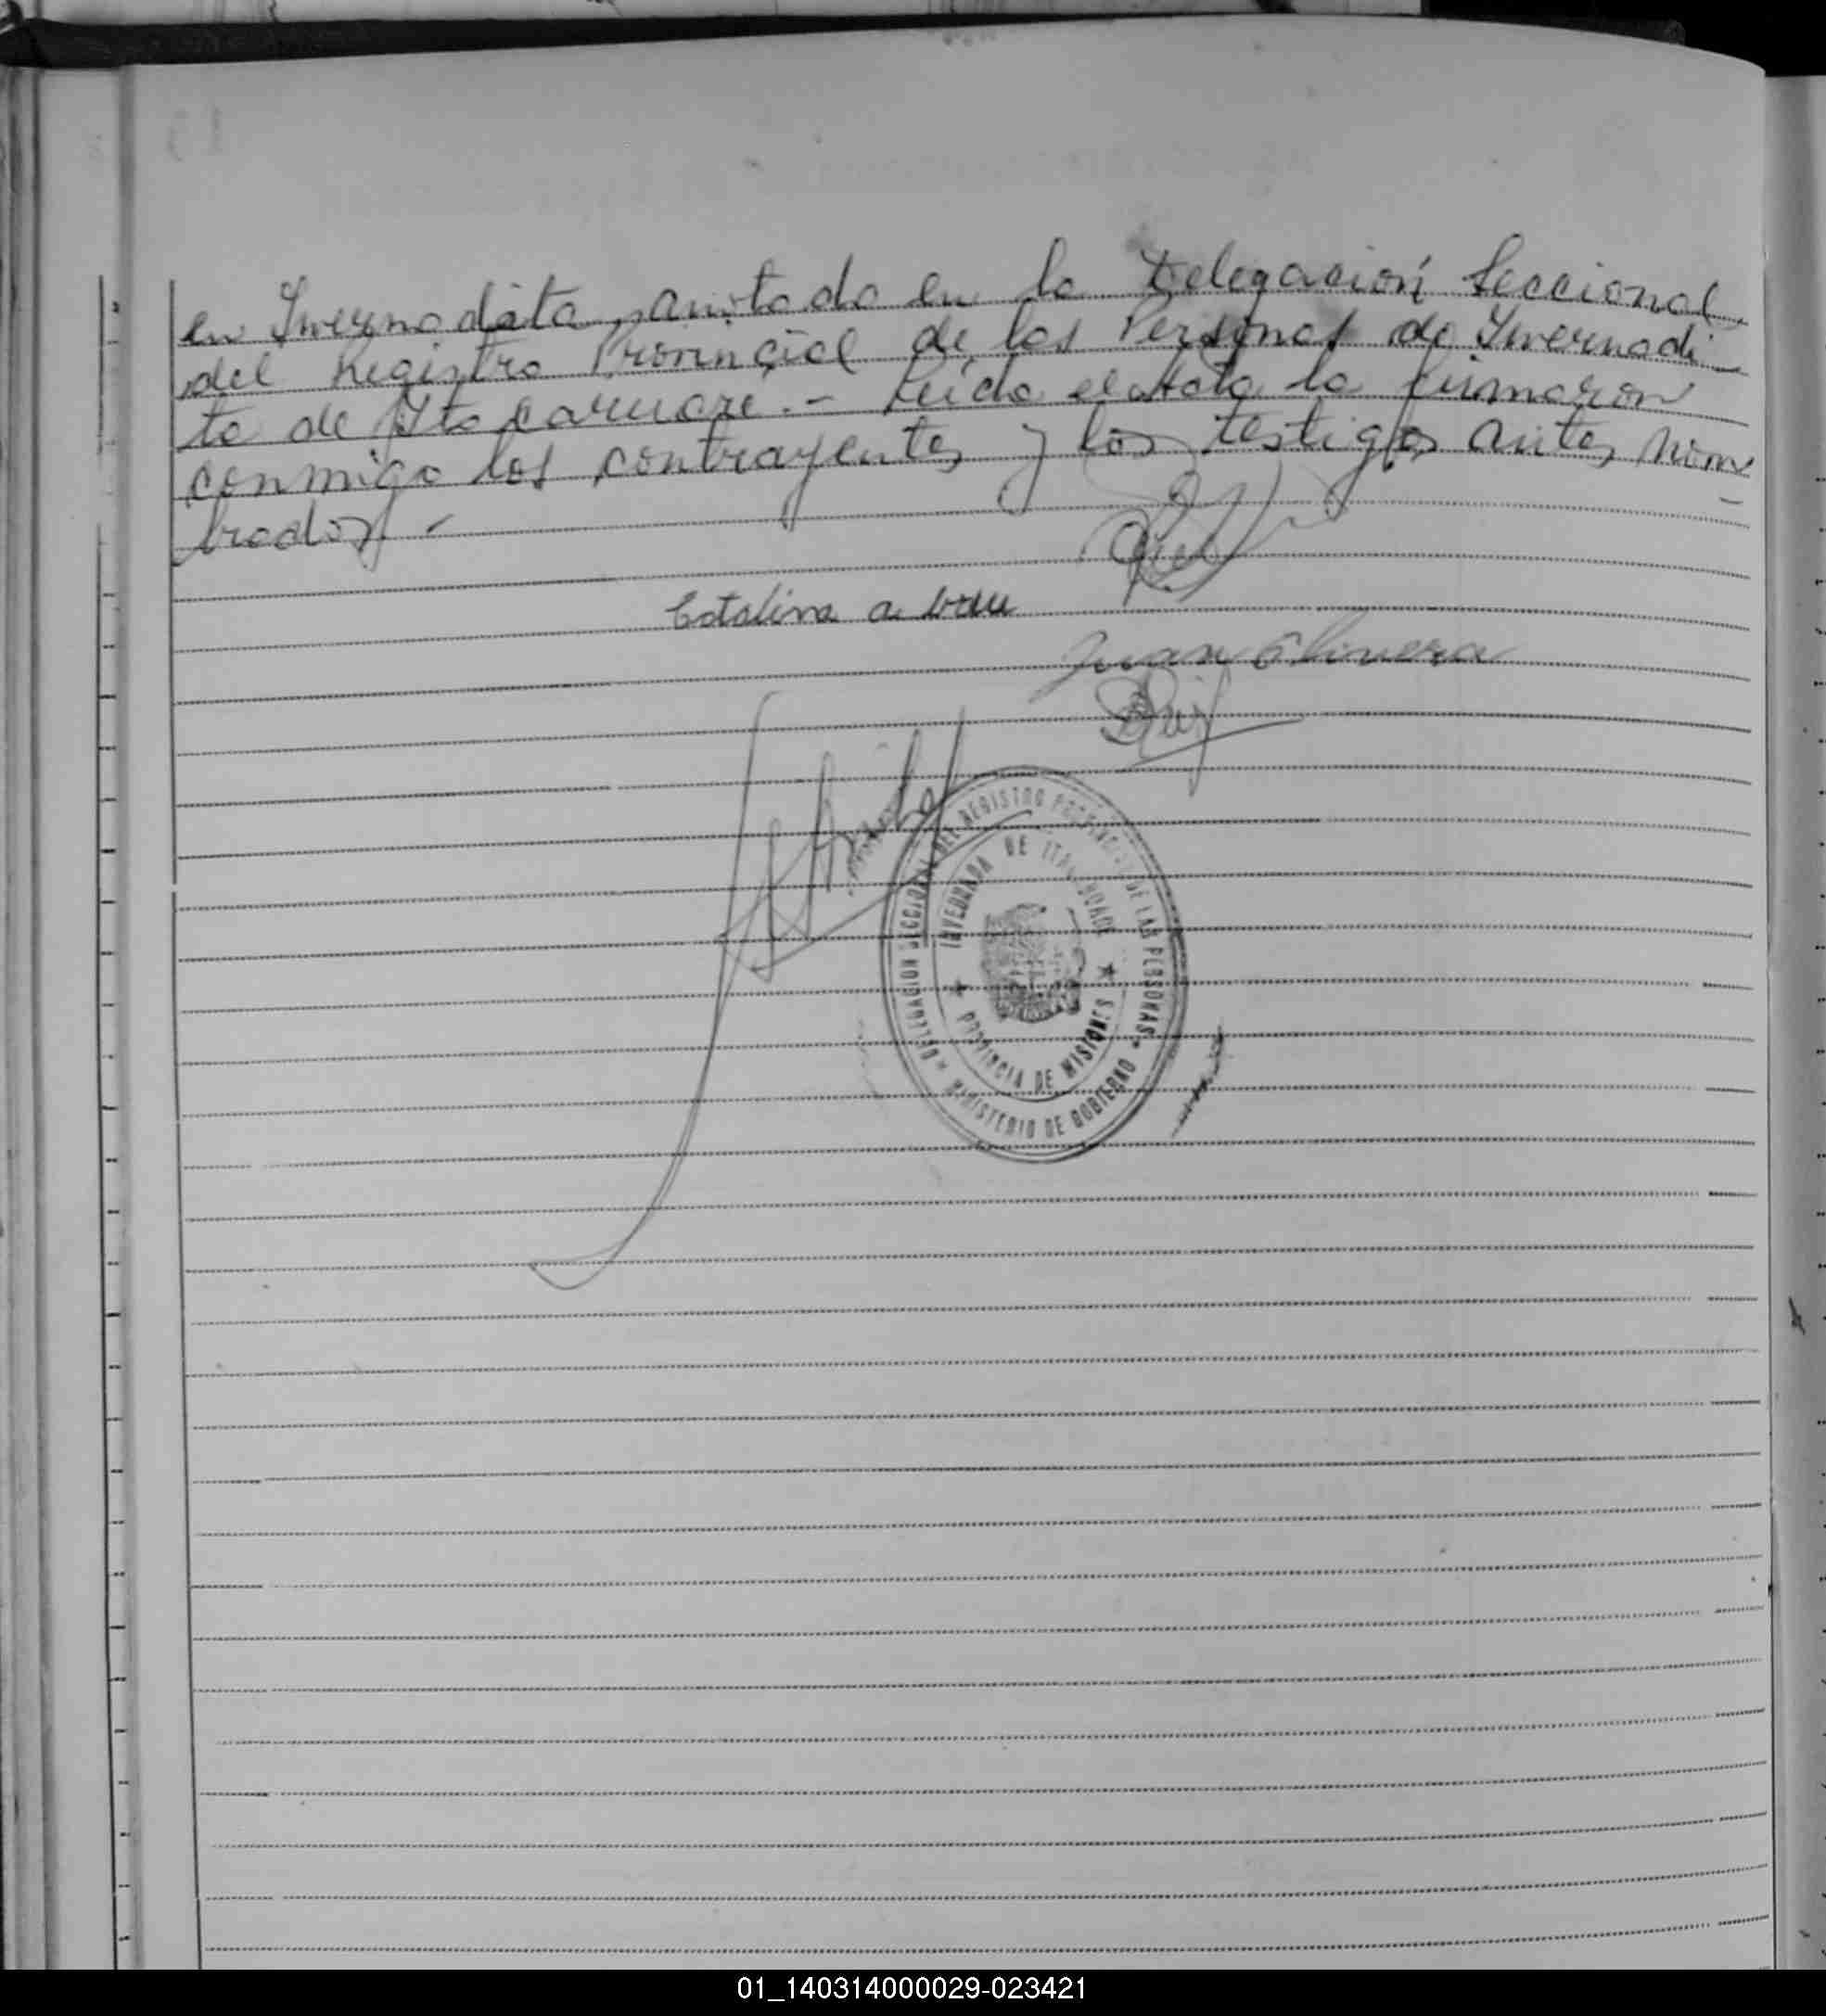 en Invernadita, anotado en la Delegación Seccional
del Registro Provincial de las Personas de Invernadi
ta de Itacaruare.- Leída el Acta la firmaron
conmigo los contrayentes y los testigos antes nom
brados.-
Catalina a
Juan Olivera
DELEGACION SECCIONAL DEL REGISTRO PROVINCIAL DE LAS PERSONAS
DE ITACARUARE
PROVINCIA DE MISIONES
MINISTERIO DE GOBIERNO
01_140314000029-023421